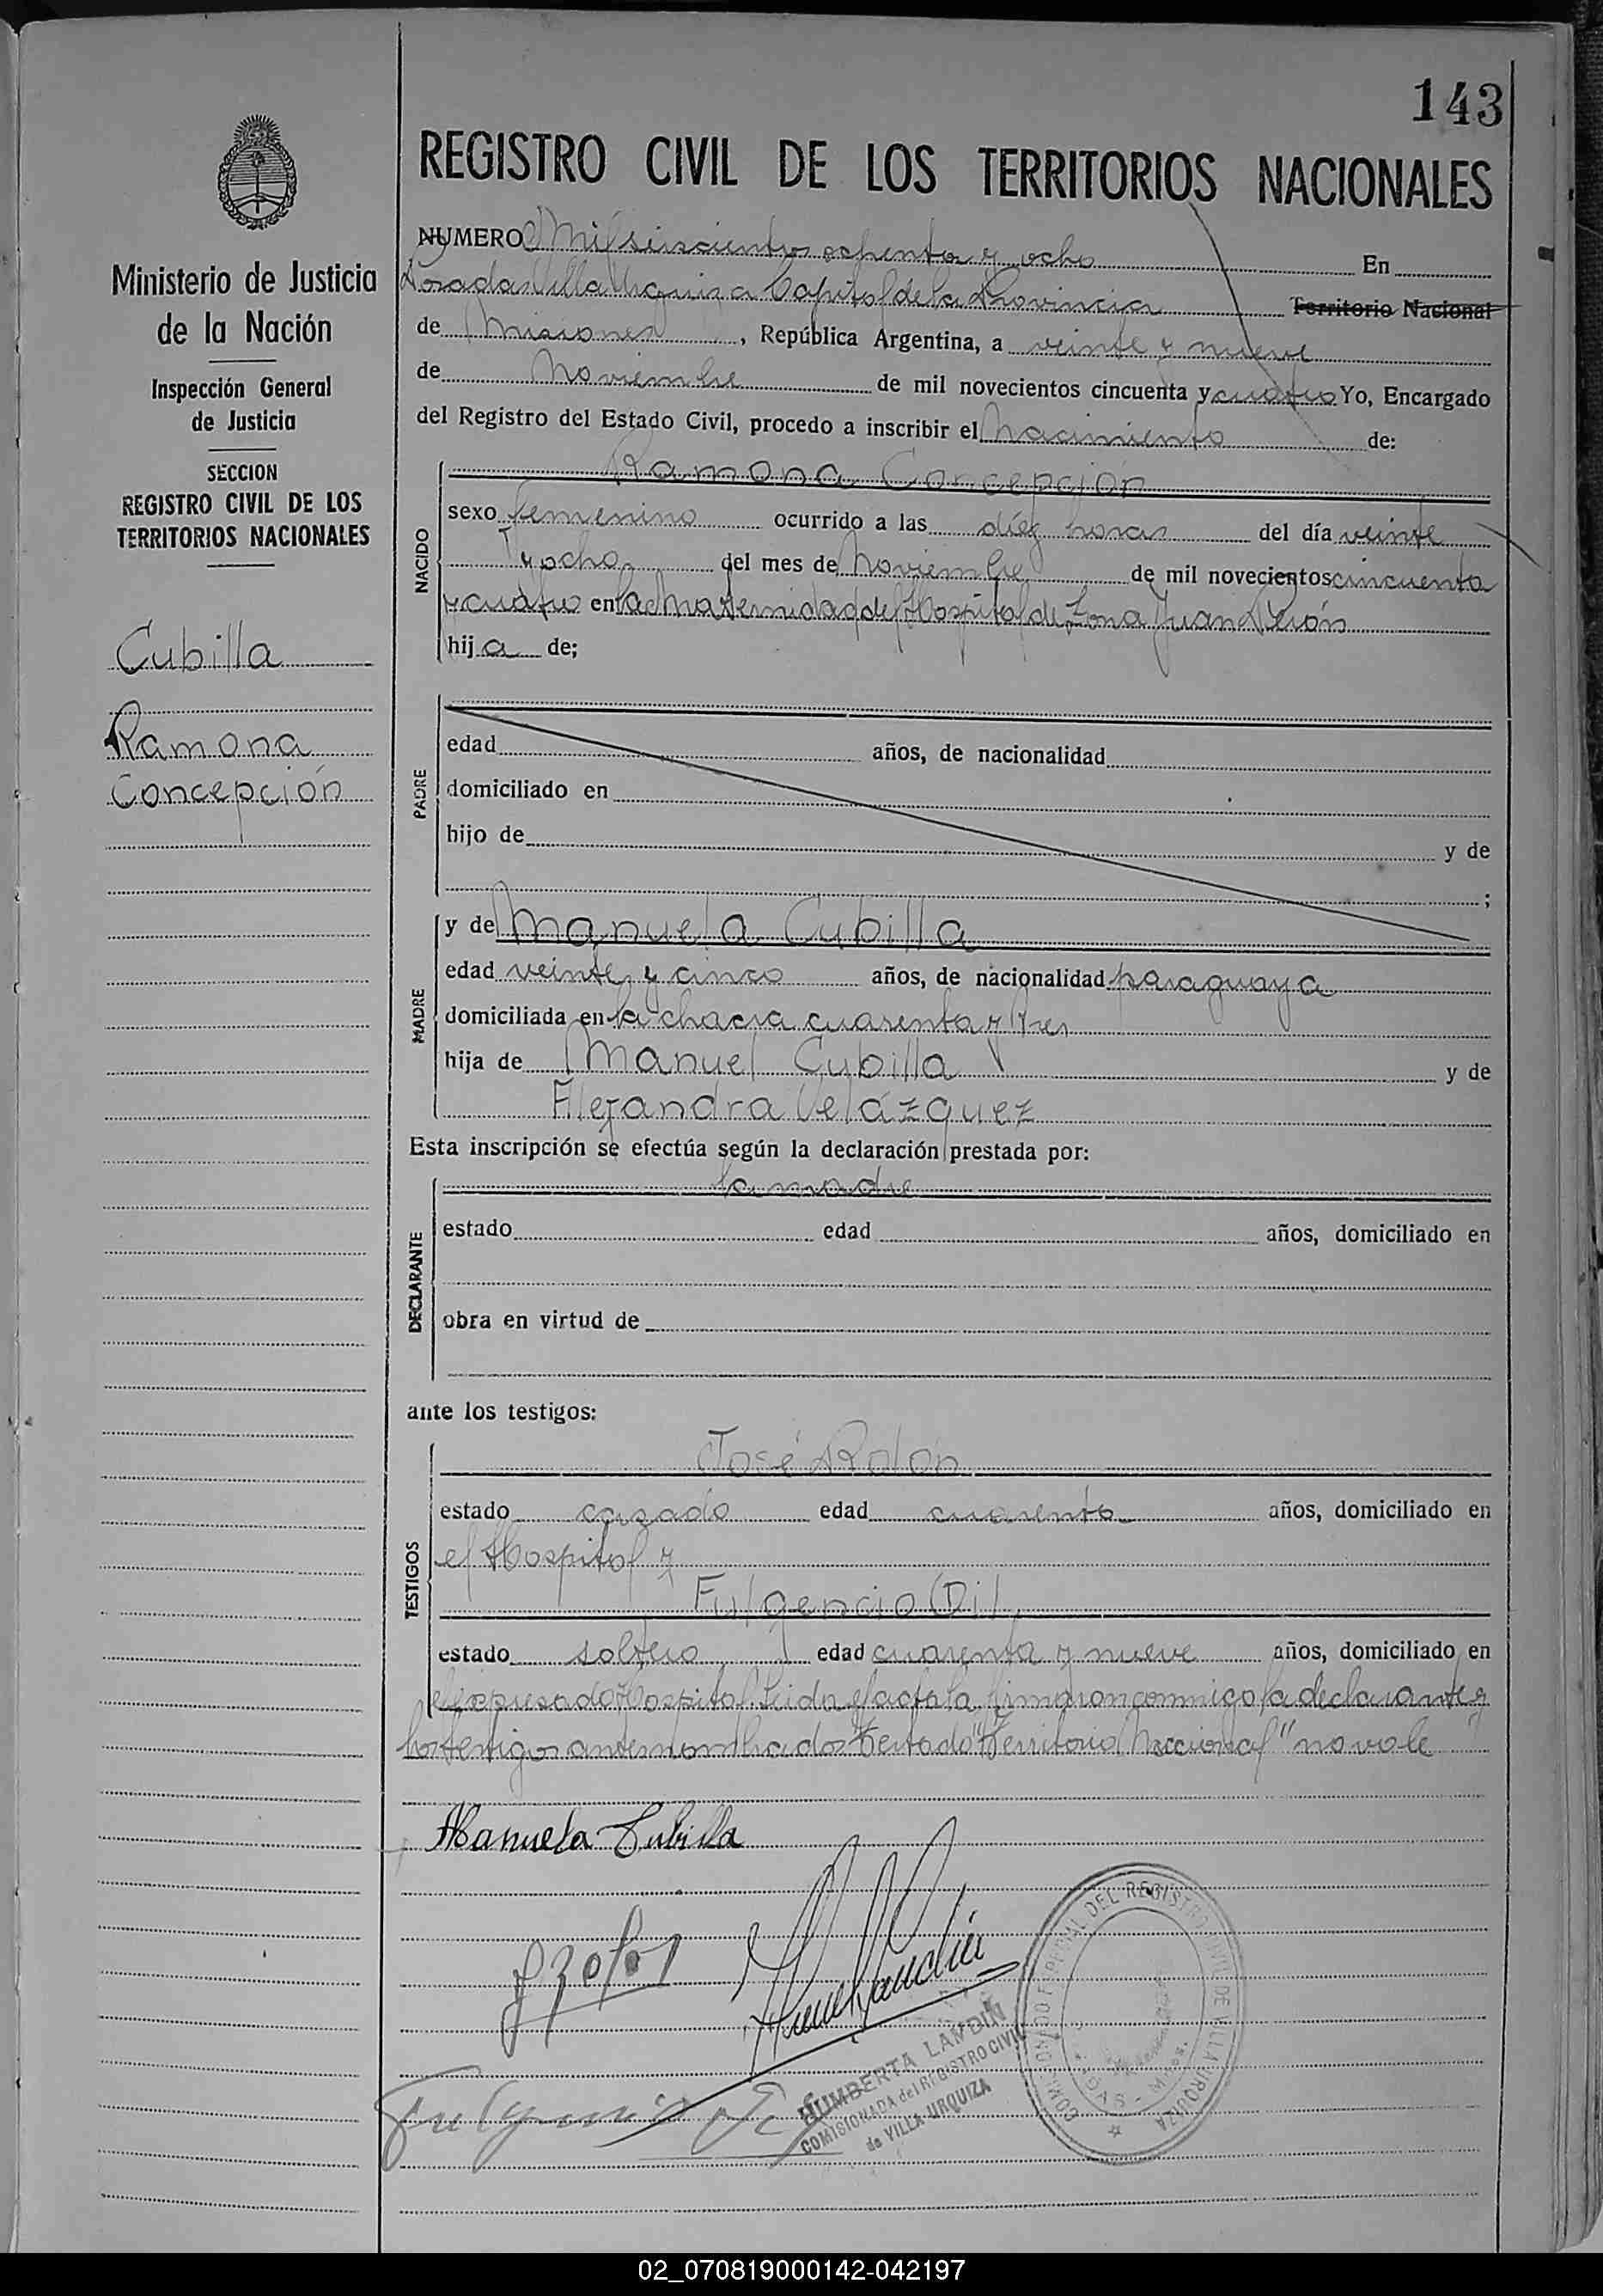 143
REGISTRO CIVIL DE LOS TERRITORIOS NACIONALES
Ministerio de Justicia
de la Nación
Inspección General
de Justicia
SECCION
REGISTRO CIVIL DE LOS
TERRITORIOS NACIONALES
Cubilla
Ramona
Concepción
NUMERO Mil seiscientos ochenta y ocho En
Posadas Villa Urquiza Capital de la Provincia Territorio Nacional
de Misiones, República Argentina, a veinte y nueve
de Noviembre de mil novecientos cincuenta y cuatro Yo, Encargado
del Registro del Estado Civil, procedo a inscribir el Nacimiento de:
NACIDO
Ramona Concepción
sexo femenino ocurrido a las diez horas del día veinte
y ocho del mes de Noviembre de mil novecientos cincuenta
y cuatro en la Maternidad del Hospital de Zona Juan Perón
hij a de;
PADRE
edad años, de nacionalidad
domiciliado en
hijo de y de
;
MADRE
y de Manuela Cubilla
edad veinte y cinco años, de nacionalidad paraguaya
domiciliada en la chacra cuarenta y tres
hija de Manuel Cubilla y de
Alejandra Velázquez
Esta inscripción se efectúa según la declaración prestada por:
DECLARANTE
la madre
estado edad años, domiciliado en
obra en virtud de
ante los testigos:
TESTIGOS
José Rolón
estado casado edad cuarenta años, domiciliado en
el Hospital y
Fulgencio Dil
estado soltero edad cuarenta y nueve años, domiciliado en
el expresado Hospital. Leida el acta la firmaron conmigo la declarante y
los testigos antes nombrados Testado "Territorio Nacional" no vale
Manuela Cubilla
HUMBERTA LANDIN
COMISIONADA del REGISTRO CIVIL
de VILLA URQUIZA
DEL REGISTRO CIVIL DE VILLA URQUIZA
02_070819000142-042197